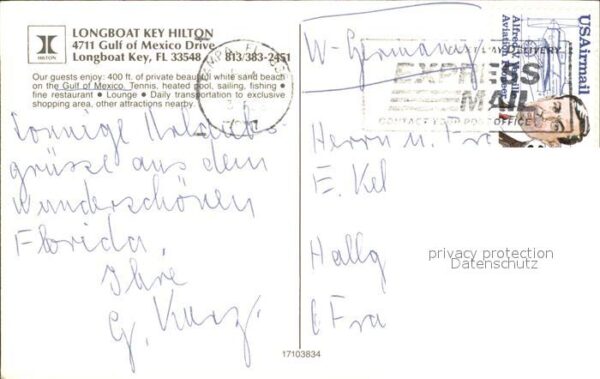 LONGBOAT KEY HILTON
4711 Gulf of Mexico Drive
Longboat Key, FL 33548 813/383-2451
Our guests enjoy: 400 ft. of private beautiful white sand beach
on the Gulf of Mexico. Tennis, heated pool, sailing, fishing •
fine restaurant • Lounge • Daily transportation to exclusive
shopping area, other attractions nearby.
Sonnige Urlaubs-
grüsse aus dem
wunderschönen
Florida,
Ihre
G. Kurz
W-Germany
NEXT DAY DELIVERY
EXPRESS
MAIL
CONTACT YOUR POST OFFICE
USAirmail
Alfred V.
Aviation Pioneer
Herrn u. Fra
E. Kel
Hallg
(Fra
privacy protection
Datenschutz
17103834